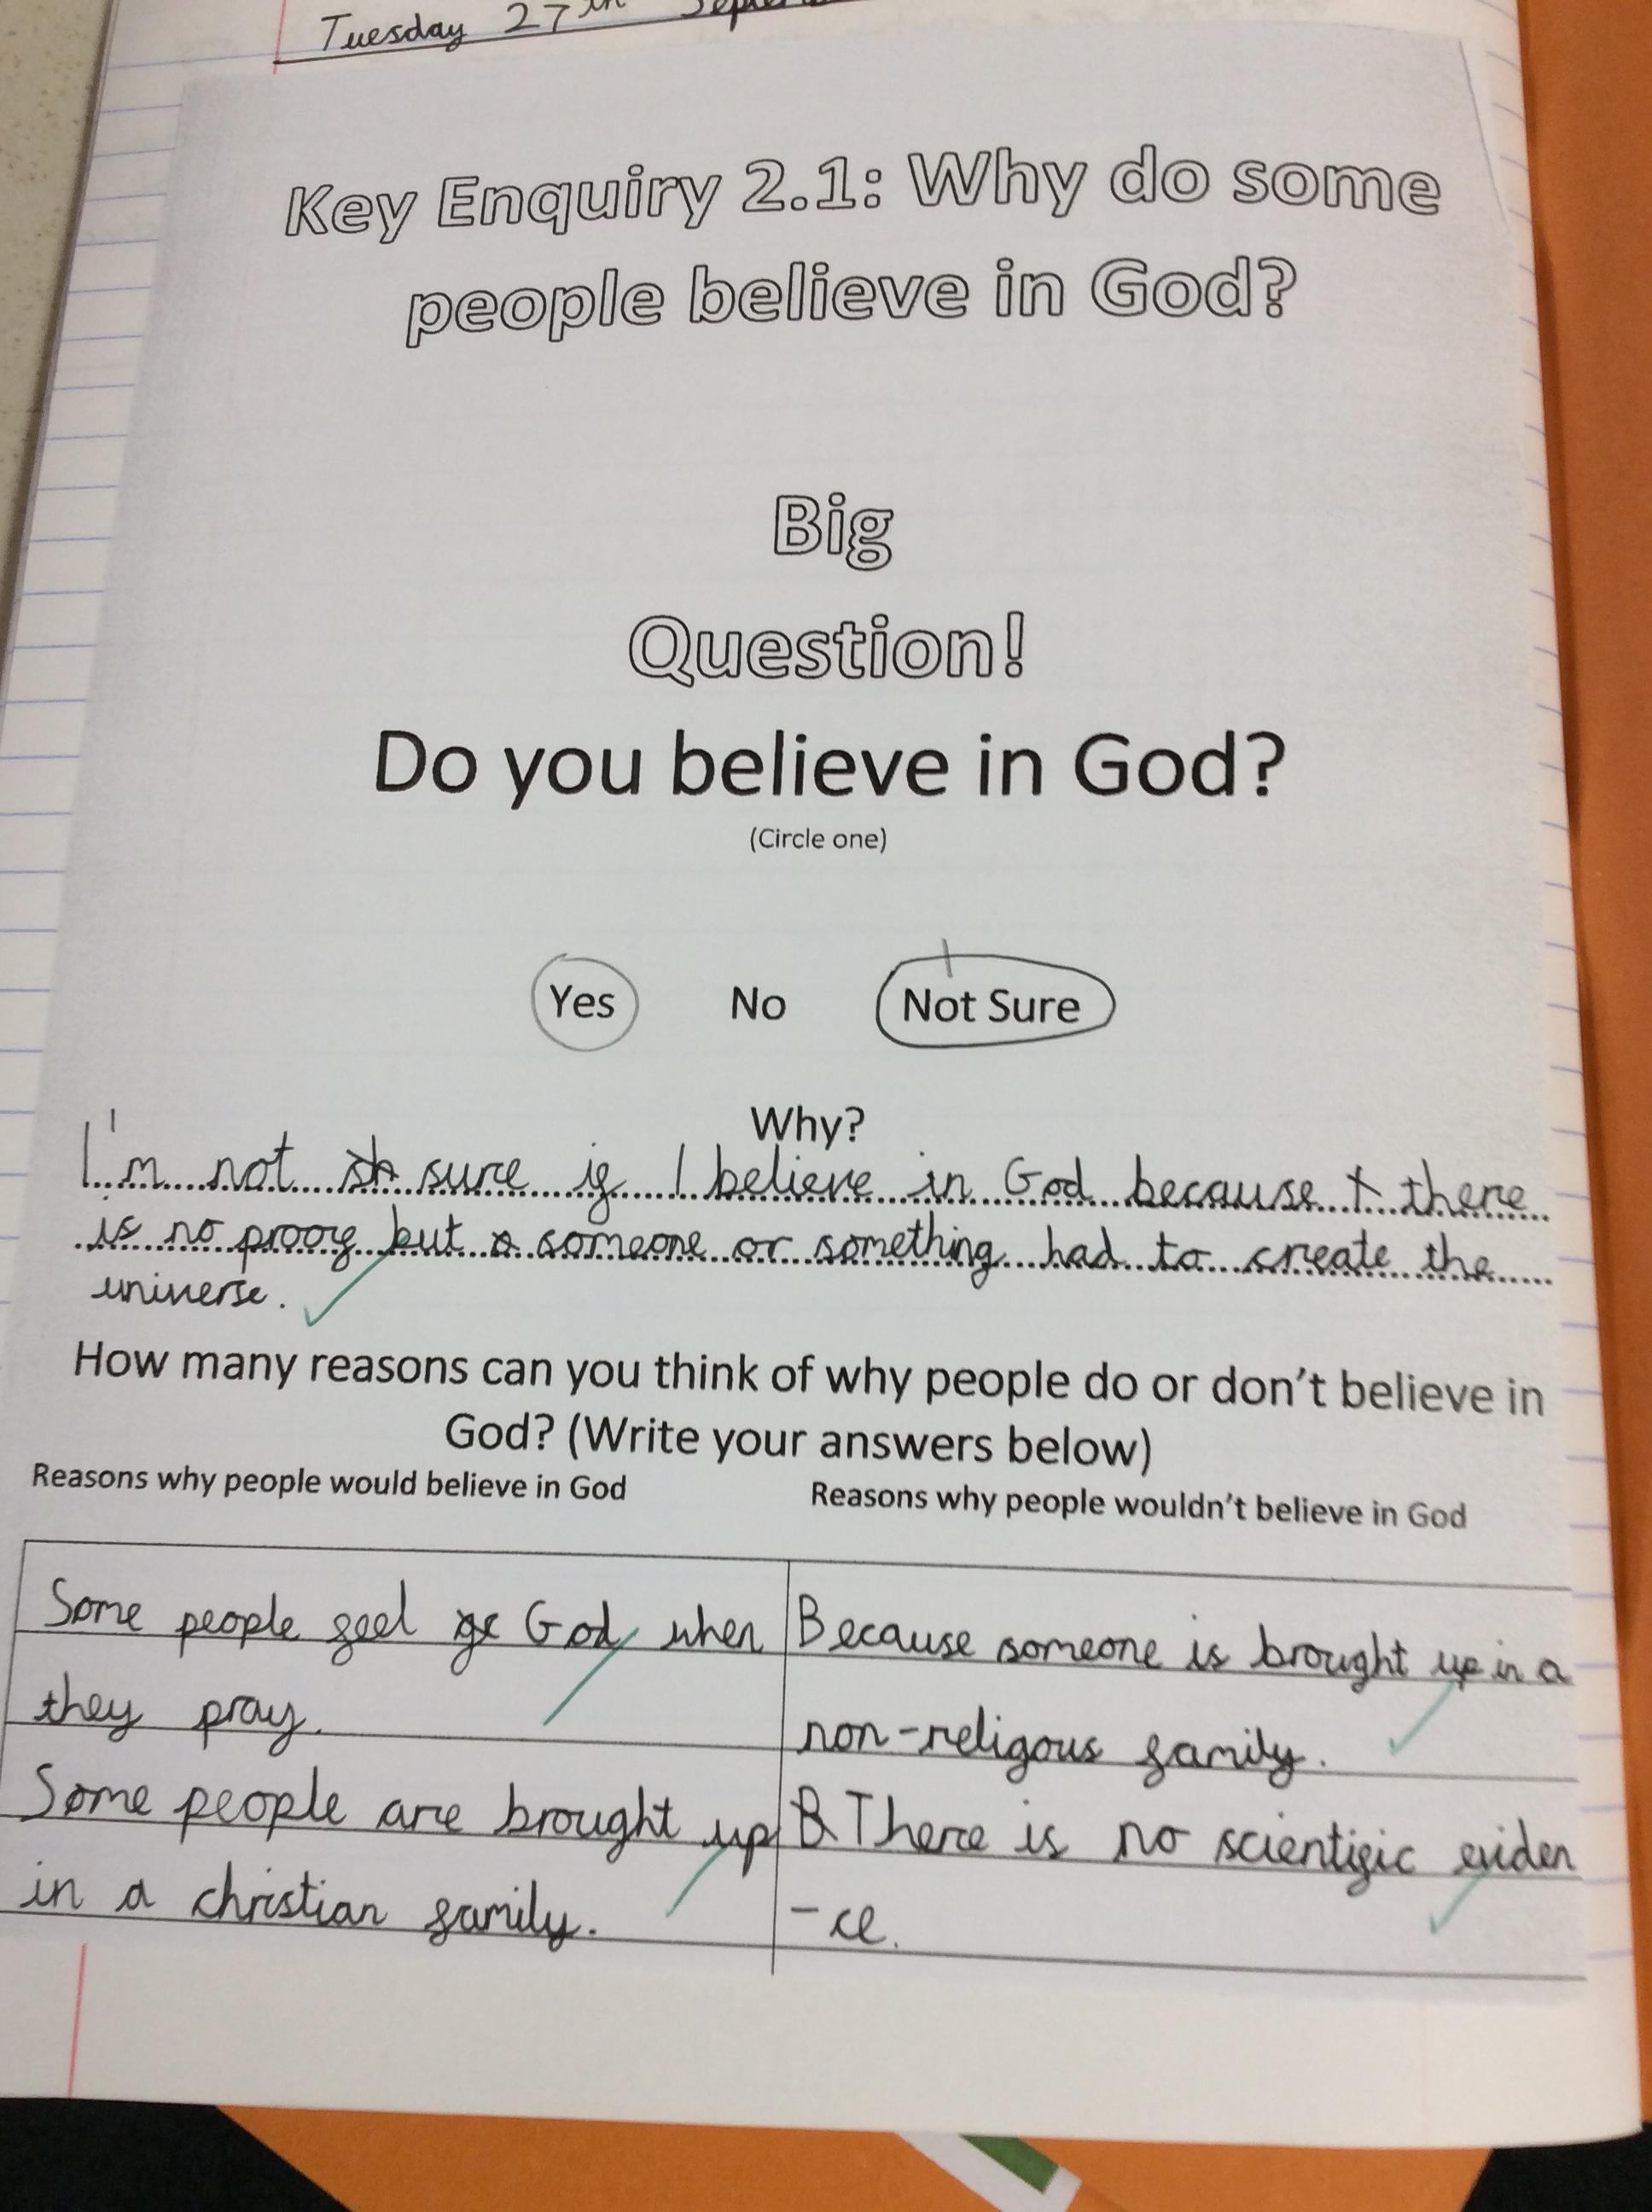 Tuesday 27th
Key Enquiry 2.1: Why do some
people believe in God?
Big
Question!
Do you believe in God?
(Circle one)
Yes No Not Sure
Why?
I'm not sh sure if I believe in God because t there
is no proof but s someone or something had to create the
universe.
How many reasons can you think of why people do or don't believe in
God? (Write your answers below)
Reasons why people would believe in God
Reasons why people wouldn't believe in God
Some people feel God when
they pray.
Some people are brought up
in a christian family.
Because someone is brought up in a
non-religous family.
B There is no scientific eviden
-ce.